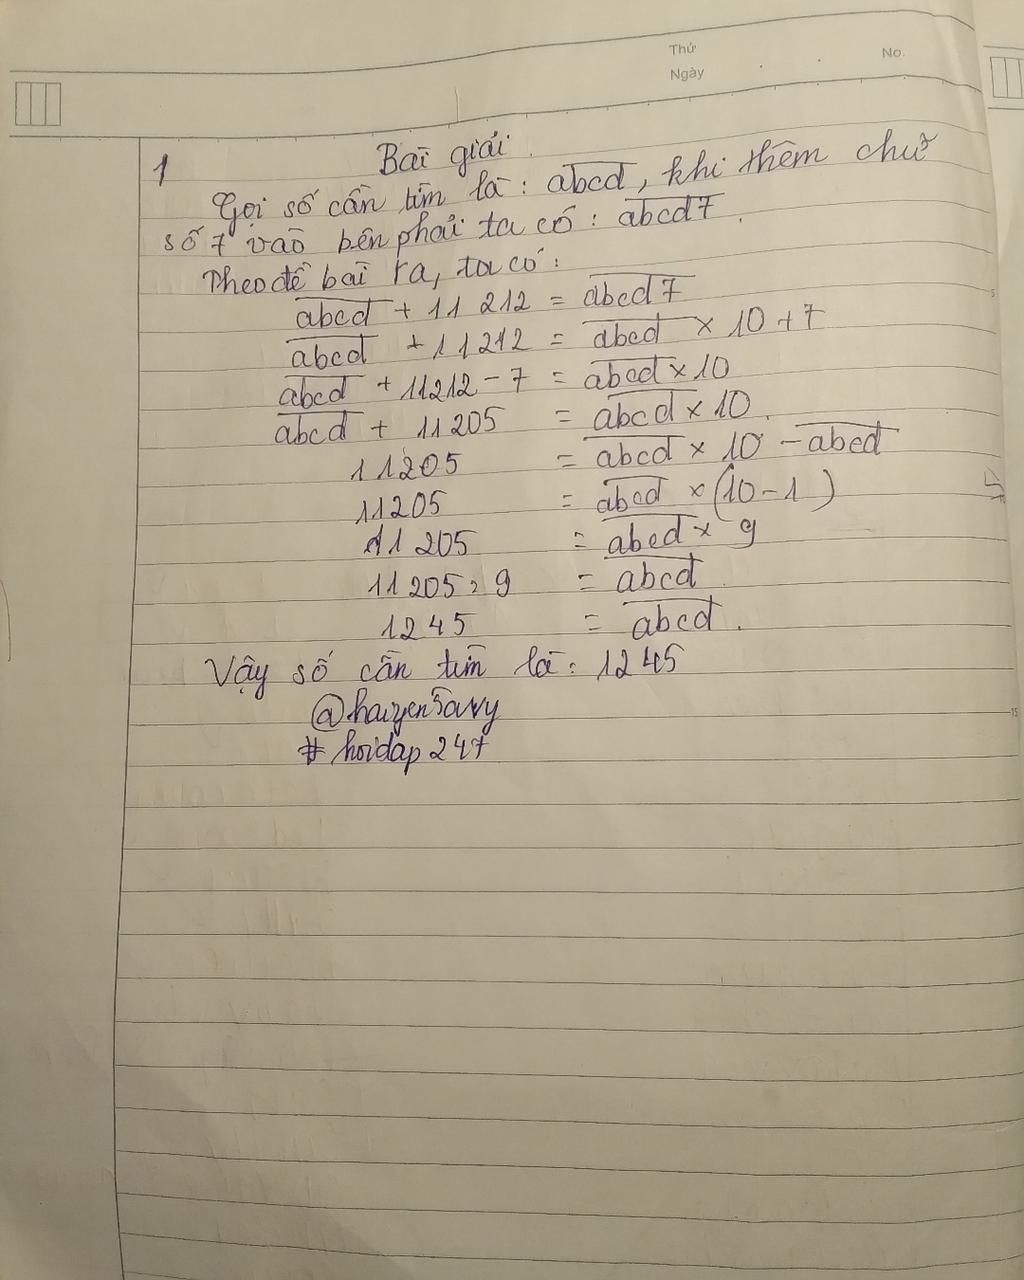 Thứ
No.
Ngày
1
Bài giải.
Gọi số cần tìm là : abcd, khi thêm chữ
số 7 vào bên phải ta có : abcd7.
Theo đề bài ra, ta có :
abcd + 11 212 = abcd7
abcd + 11212 = abcd × 10 + 7
abcd + 11212 - 7 = abcd × 10
abcd + 11205 = abcd × 10.
11205 = abcd × 10 - abcd
11205 = abcd × (10 - 1)
11 205 = abcd × 9
11205 : 9 = abcd
1245 = abcd.
Vậy số cần tìm là : 1245
#hoidap247